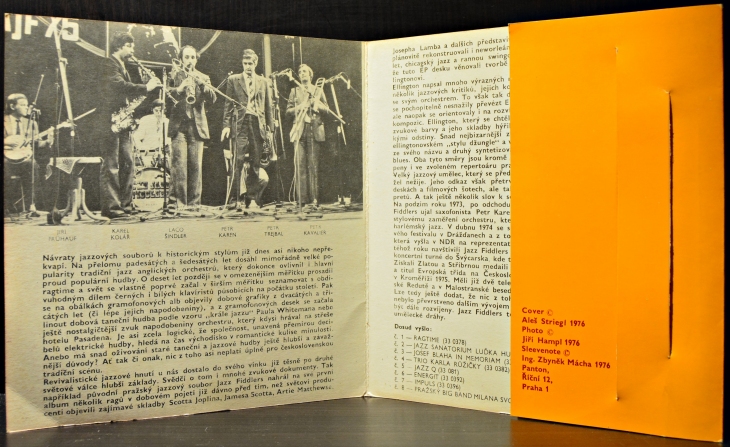 JFX5
JIŘÍ
KAREL
KOLÁŘ
LACO
ŠINDLER
PETR
KAREN
PETR
TREJBAL
PETR
KAVALIER
Návraty jazzových souborů k historickým stylům již dnes asi nikoho nepře-
kvapí. Na přelomu padesátých a šedesátých let dosáhl mimořádně velké po-
pularity tradiční jazz anglických orchestrů, který dokonce ovlivnil i hlavní
proud populární hudby. O deset let později se v omezenějším měřítku prosadil
ragtime a svět se vlastně poprvé začal v širším měřítku seznamovat s obdi-
vuhodným dílem černých i bílých klaviristů působících na počátku století. Pak
se na obálkách gramofonových alb objevily dobové grafiky z dvacátých a tři-
cátých let (či lépe jejich napodobeniny), a z gramofonových desek se začala
linout dobová taneční hudba podle vzoru „krále jazzu" Paula Whitemana nebo
ještě nostalgičtější zvuk napodobeniny orchestru, který kdysi hrával na střeše
hotelu Pasadena. Je asi zcela logické, že společnost, unavená přemírou deci-
belů elektrické hudby, hledá na čas východisko v romantické kulise minulosti.
Anebo má snad ožívování staré taneční a jazzové hudby ještě hlubší a závaž-
nější důvody? Ať tak či onak, nic z toho asi neplatí úplně pro československou
tradiční scénu.
Revivalistické jazzové hnutí u nás dostalo do svého vínku již těsně po druhé
světové válce hlubší základy. Svědčí o tom i mnohé zvukové dokumenty. Tak
například původní pražský jazzový soubor Jazz Fiddlers nahrál na své první
album několik ragů v dobovém pojetí již dávno před tím, než světoví produ-
centi objevili zajímavé skladby Scotta Joplina, Jamesa Scotta, Artie Matthewse,
Josepha Lamba a dalších představi
plánovitě rekonstruovali i neworleán
les, chicagský jazz a rannou swingo
že tuto EP desku věnovali tvorbě
lingtonovi.
Ellington napsal mnoho výrazných
několik jazzových kritiků, jejich ko
se svým orchestrem. To však tak
se pochopitelně nesnažily převézt E
ale naopak se orientovaly i na rozvo
kompozic. Ellington, který se chtěl
zvukové barvy a jeho skladby hýřil
kými odstíny. Snad nejbizarnější z
ellingtonovském „stylu džungle" a
ze svého názvu a druhý syntetizov
blues. Oba tyto směry jsou kromě
peny i ve zvoleném repertoáru pra
Velký jazzový umělec, který se před
žel nežije. Jeho odkaz však přetrv
deskách a filmových šotech, ale ta
petů. A tak ještě několik slov k se
Na podzim roku 1973, po odchodu
Fiddlers ujal saxofonista Petr Kare
stylovému zaměření orchestru, kte
harlémský jazz. V dubnu 1974 se s
vého festivalu v Drážďanech a z to
která vyšla v NDR na reprezentat
téhož roku navštívili Jazz Fiddlers
koncertní turné do Švýcarska, kde t
Získali Zlatou a Stříbrnou medaili
a titul Evropská třída na Českoslo
v Kroměříži 1975. Měli již dvě tele
ské Redutě a v Malostranské besed
Lze tedy ještě dodat, že nic z tol
nebylo převrstveno dalším vývojem
být dále rozvíjeny. Jazz Fiddlers to
umělecké dráhy.
Dosud vyšlo:
č. 1 — RAGTIME (33 0378)
č. 2 — JAZZ SANATORIUM LUĎKA HU
č. 3 — JOSEF BLAHA IN MEMORIAM (3
č. 4 — TRIO KARLA RŮŽIČKY (33 0382)
č. 5 — JAZZ Q (33 0381)
č. 6 — ENERGIT (33 0392)
č. 7 — IMPULS (33 0396)
č. 8 — PRAŽSKÝ BIG BAND MILANA SVO
Cover ©
Aleš Striegl 1976
Photo ©
Jiří Hampl 1976
Sleevenote ©
Ing. Zbyněk Mácha 1976
Panton,
Říční 12,
Praha 1